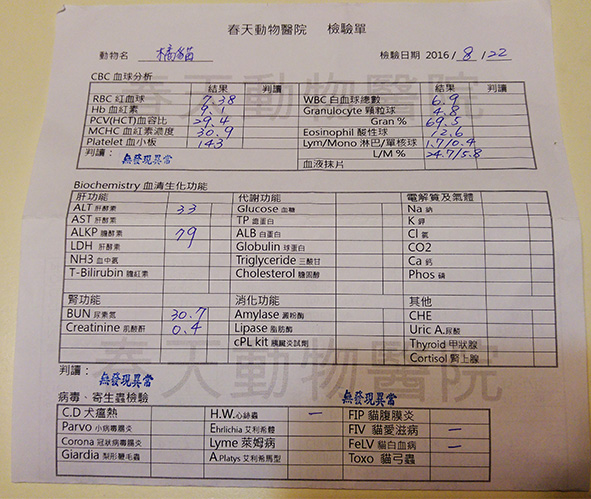 春天動物醫院 檢驗單
動物名 橘貓 檢驗日期 2016/8/22
CBC 血球分析
結果 判讀 結果 判讀
RBC 紅血球 7.38 WBC 白血球總數 6.9
Hb 血紅素 9.1 Granulocyte 顆粒球 4.8
PCV(HCT)血容比 29.4 Gran % 69.5
MCHC 血紅素濃度 30.9 Eosinophil 酸性球 12.6
Platelet 血小板 143 Lym/Mono 淋巴/單核球 1.7/0.4
判讀： 無發現異常 L/M % 24.7/5.8
血液抹片
Biochemistry 血清生化功能
肝功能 代謝功能 電解質及氣體
ALT 肝酵素 33 Glucose 血糖 Na 鈉
AST 肝酵素 TP 總蛋白 K 鉀
ALKP 膽酵素 79 ALB 白蛋白 Cl 氯
LDH 肝酵素 Globulin 球蛋白 CO2
NH3 血中氨 Triglyceride 三酸甘 Ca 鈣
T-Bilirubin 膽紅素 Cholesterol 膽固醇 Phos 磷
腎功能 消化功能 其他
BUN 尿素氮 30.7 Amylase 澱粉酶 CHE
Creatinine 肌酸酐 0.4 Lipase 脂肪酶 Uric A.尿酸
cPL kit 胰臟炎試劑 Thyroid 甲狀腺
Cortisol 腎上腺
判讀： 無發現異常
春天動物醫院
病毒、寄生蟲檢驗 無發現異常
C.D 犬瘟熱 H.W.心絲蟲 － FIP 貓腹膜炎
Parvo 小病毒腸炎 Ehrlichia 艾利希體 FIV 貓愛滋病 －
Corona 冠狀病毒腸炎 Lyme 萊姆病 FeLV 貓白血病 －
Giardia 梨形鞭毛蟲 A.Platys 艾利希馬型 Toxo 貓弓蟲